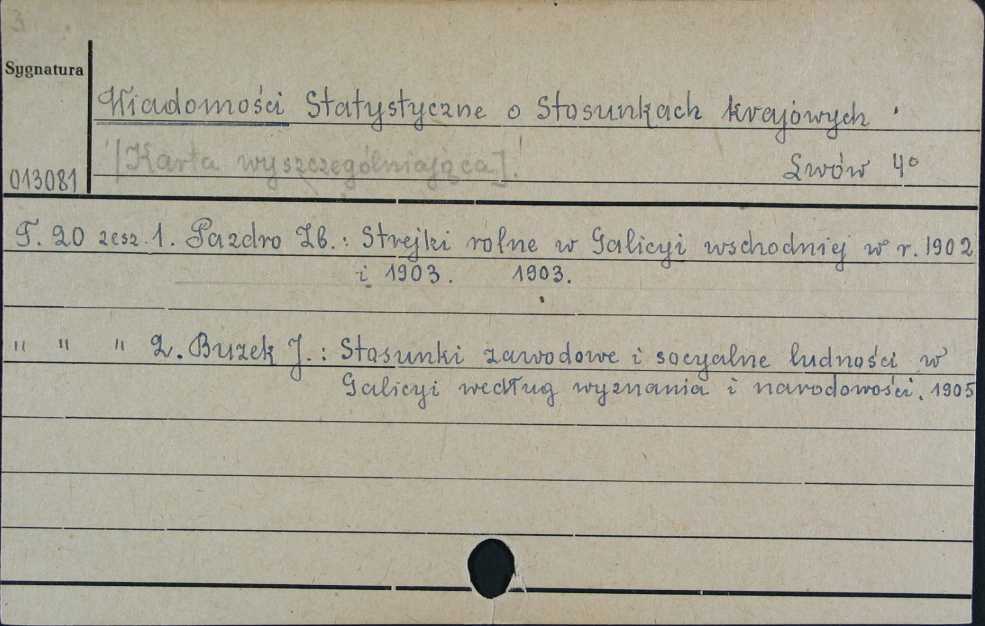 3
Sygnatura
Wiadomości Statystyczne o Stosunkach krajowych
[Karta wyszczególniająca].
Lwów 4°
013081
T. 20 zesz. 1. Pazdro Zb.: Strejki rolne w Galicyi wschodniej w r. 1902
i 1903. 1903.
" " " 2. Buzek J.: Stosunki zawodowe i socyalne ludności w
Galicyi według wyznania i narodowości. 1905